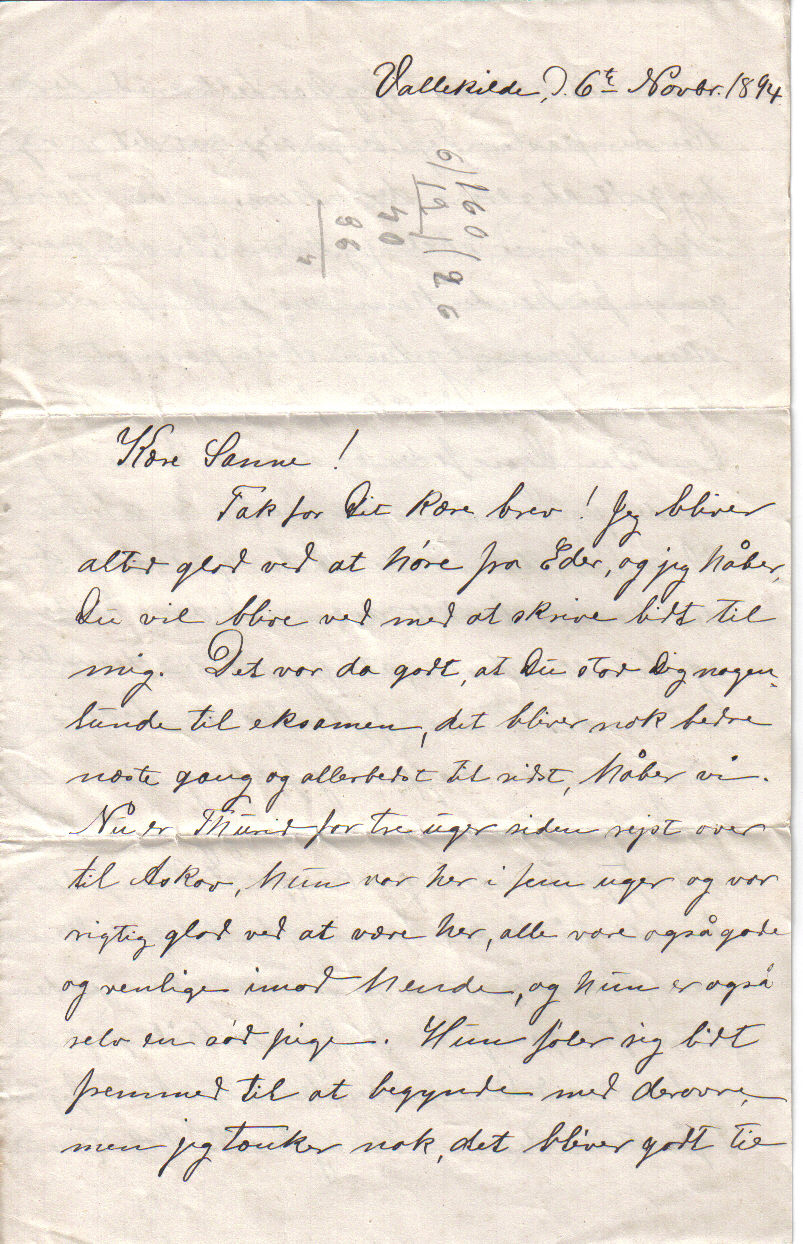 Vallekilde, D. 6te Novbr. 1894
Kære Sanne!
Tak for Dit kære brev! Jeg bliver
altid glad ved at høre fra Eder, og jeg håber,
Du vil blive ved med at skrive lidt til
mig. Det var da godt, at Du stod Dig nogen-
lunde til eksamen, det bliver nok bedre
næste gang og allerbedst til sidst, håber vi.
Nu er Thurid for tre uger siden rejst over
til Askov, hun var her i fem uger og var
rigtig glad ved at være her, alle vare også gode
og venlige imod hende, og hun er også
selv en sød pige. Hun føler sig lidt
fremmed til at begynde med derovre,
men jeg tænker nok, det bliver godt til